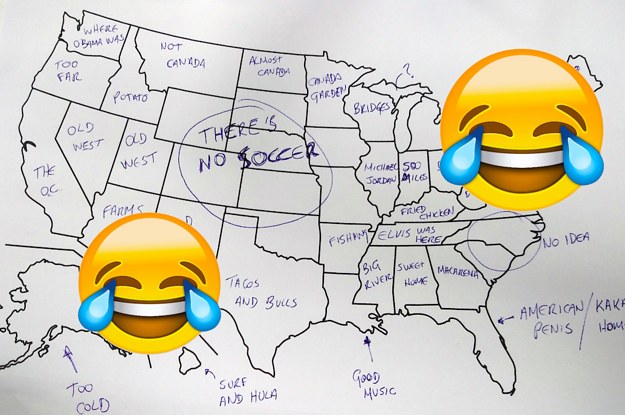 WHERE
OBAMA WAS
TOO
FAR
NOT
CANADA
POTATO
ALMOST
CANADA
CANADA
GARDEN
?
BRIDGES
OLD
WEST
OLD
WEST
THERE IS
NO SOCCER
THE
O.C.
MICHAEL
JORDAN
500
MILES
FARMS
FRIED
CHICKEN
ELVIS WAS
HERE
NO IDEA
TACOS
AND BULLS
BIG
RIVER
SWEET
HOME
MACARENA
AMERICAN
PENIS /
TOO
COLD
SURF
AND HULA
GOOD
MUSIC